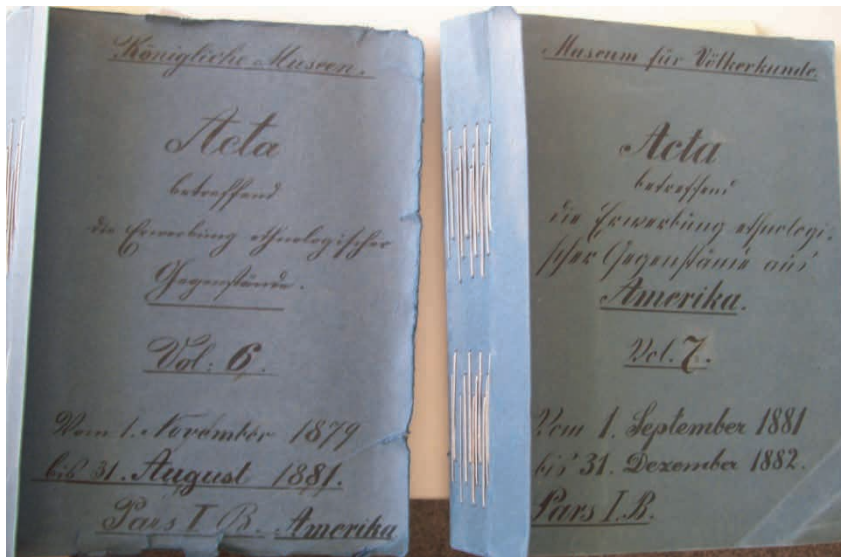 Königliche Museen.
Acta
betreffend
die Erwerbung ethnologischer
Gegenstände.
Vol: 6.
Vom 1. November 1879
bis 31. August 1881.
Pars I. B. Amerika
Museum für Völkerkunde.
Acta
betreffend
die Erwerbung ethnologi-
scher Gegenstände aus
Amerika.
Vol. 7.
Vom 1. September 1881
bis 31. Dezember 1882.
Pars I. B.